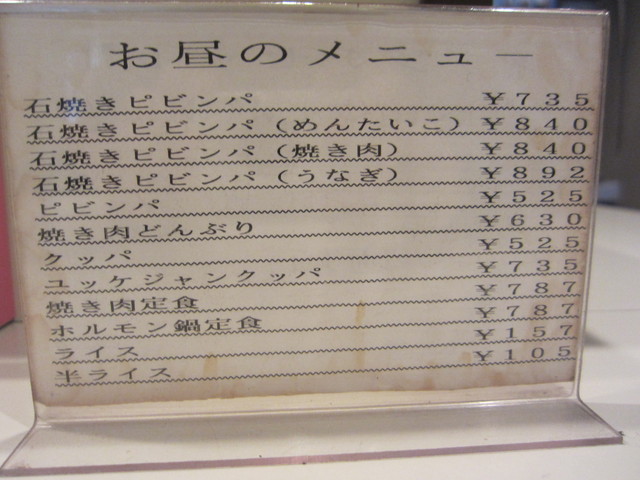 お昼のメニュー
石焼きピビンパ ￥７３５
石焼きピビンパ（めんたいこ） ￥８４０
石焼きピビンパ（焼き肉） ￥８４０
石焼きピビンパ（うなぎ） ￥８９２
ピビンパ ￥５２５
焼き肉どんぶり ￥６３０
クッパ ￥５２５
ユッケジャンクッパ ￥７３５
焼き肉定食 ￥７８７
ホルモン鍋定食 ￥７８７
ライス ￥１５７
半ライス ￥１０５